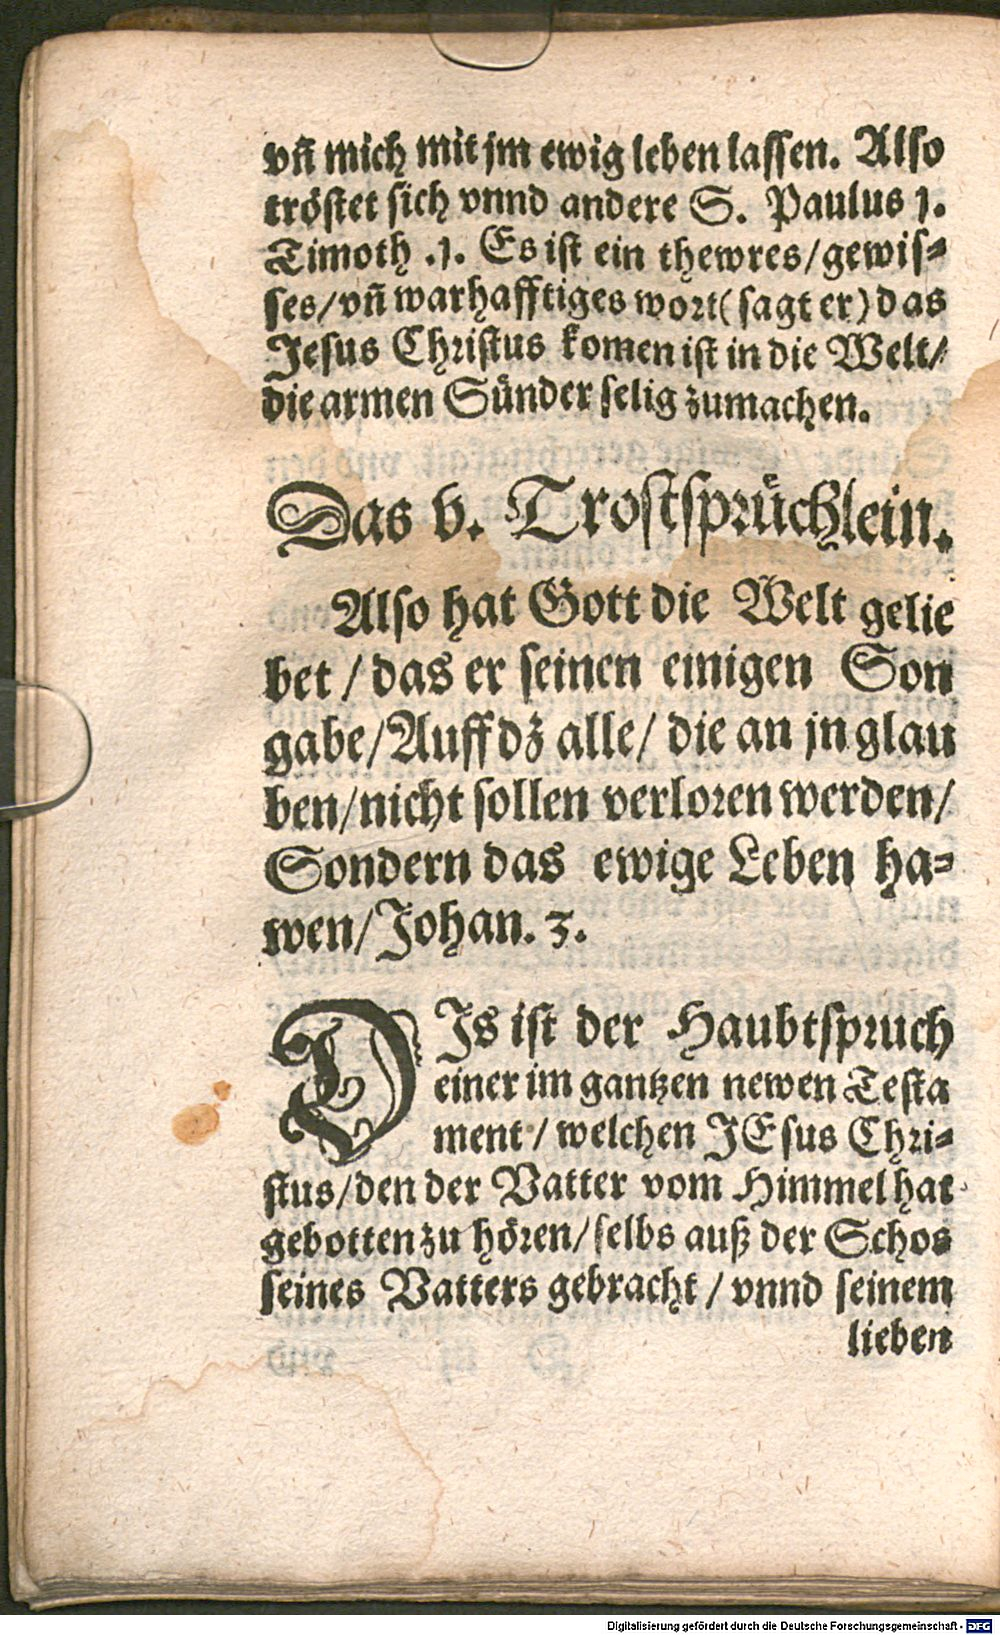 vñ mich mit jm ewig leben lassen. Also
tröstet sich vnnd andere S. Paulus 1.
Timoth .1. Es ist ein thewres/gewis⸗
ses/vñ warhafftiges wort(sagt er)das
Jesus Christus komen ist in die Welt/
die armen Sünder selig zumachen.
Das v. Trostsprüchlein.
Also hat Gott die Welt gelie
bet / das er seinen einigen Son
gabe/Auff dz alle/ die an jn glau
ben/nicht sollen verloren werden/
Sondern das ewige Leben ha⸗
wen/Johan. 3.
DIs ist der Haubtspruch
einer im gantzen newen Testa
ment / welchen JEsus Chri⸗
stus/den der Vatter vom Himmel hat
gebotten zu hören/selbs auß der Schos
seines Vatters gebracht / vnnd seinem
lieben
Digitalisierung gefördert durch die Deutsche Forschungsgemeinschaft - DFG